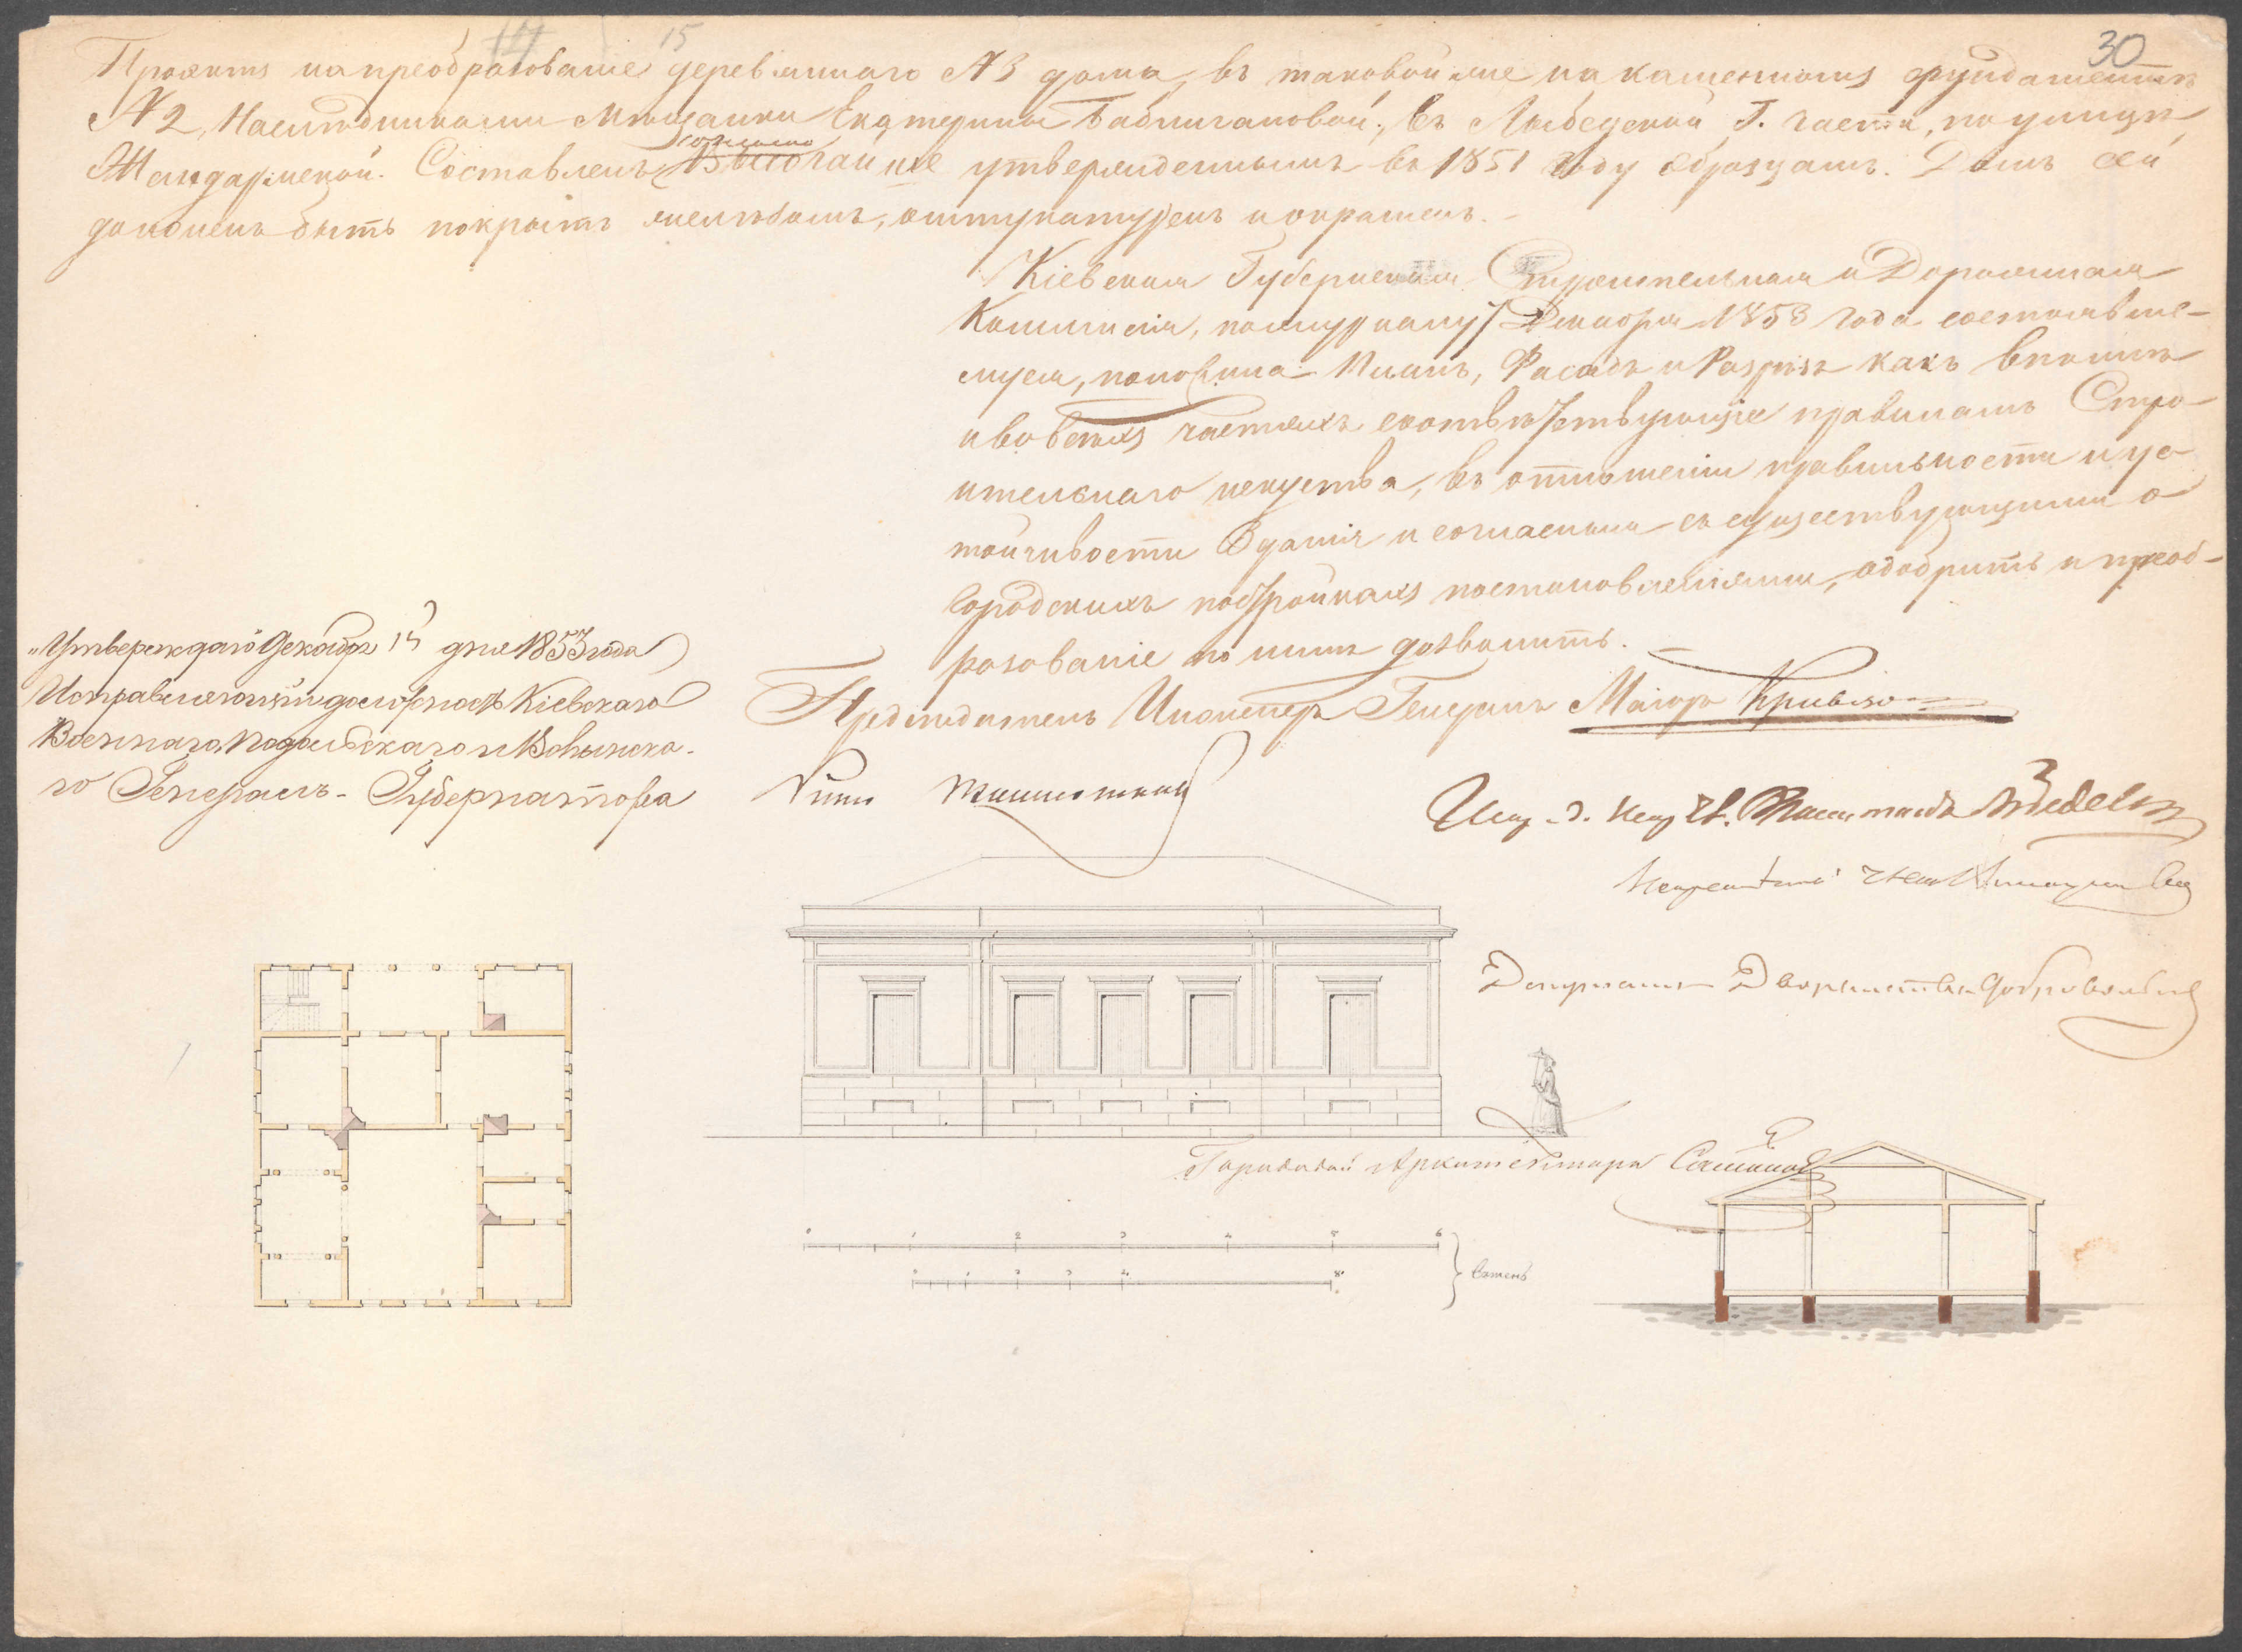 14 15 30
Проэктъ на преобразованіе деревяннаго №3 дома, въ таковой же на каменномъ фундаментѣ
№2, Наслѣдниками Мѣщанки Екатерины; въ Лыбедской Г. части, по улицѣ
согласно
Жандармской. Составленъ Высочайше утвержденнымъ въ 1851 году образцамъ. Домъ сей
долженъ быть покрытъ желѣзомъ, оштукатуренъ и окрашенъ.
Кіевская Губернская Строительная и Дорожная
Коммисія, по журналу 7 Декабря 1853 года состоявше-
муся, Планъ, Фасадъ и Разрѣзъ какъ вполнѣ
и во всѣхъ частяхъ соотвѣтствующіе правиламъ Стро-
ительнаго искуства, въ отношеніи правильности и ус-
тойчивости Зданія и согласныя съ существующими о
Городскихъ постройкахъ постановленіями, одобрить и преоб-
разованіе по нимъ дозволить.
„Утверждаю" Декабря 15 дня 1853 года
Исправляющій должность Кіевскаго
Военнаго, Подольскаго и Волынска-
го Генералъ-Губернатора
Предсѣдатель Инженеръ Генералъ Маіоръ
Депутатъ Дворянства
Городовой Архитекторъ
0 1 2 3 4 5 6
0 1 2 3 4 8
Сажень